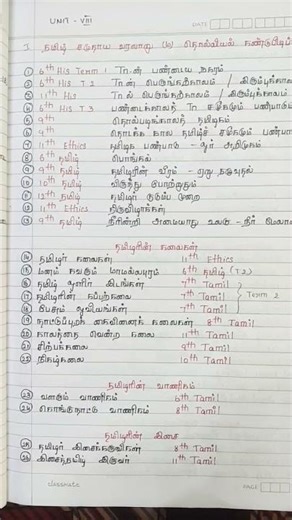 UNIT - VIII
DATE
1. தமிழ் சமுதாய வரலாறு (ம) தொல்லியல் கண்டுபிடிப்
① 6th His Term 1 TN-ன் பண்டைய நகரம்
② 6th His T2 TN-ன் பெருங்கற்காலம் / இரும்புக்காலம்
③ 11th His TN-ல் பெருங்கற்காலம் / இரும்புக்காலம்
④ 6th His T3 பண்டைக்காலத் TN சமூகமும் பண்பாடும்
⑤ 9th தொல்பழங்காலத் தமிழகம்
⑥ 9th தொடக்க கால தமிழ்ச் சமூகமும் பண்பா
⑦ 11th Ethics தமிழக பண்பாடு - ஓர் அறிமுகம்
⑧ 6th தமிழ் பொங்கல்
⑨ 9th தமிழ் தமிழரின் வீரம் - ஏறு தழுவுதல்
⑩ 10th தமிழ் விருந்து போற்றுதும்
⑪ 12th தமிழ் தமிழர் குடும்ப முறை
⑫ 11th Ethics திருவிழாக்கள்
⑬ 9th தமிழ் நீரின்றி அமையாது உலகு - நீர் மேலா
தமிழரின் கலைகள்
⑭ தமிழர் கலைகள் 11th Ethics
⑮ மனம் கவரும் மாமல்லபுரம் 6th தமிழ் (T2)
⑯ தமிழ் ஒளிர் இடங்கள் 7th Tamil
⑰ தமிழரின் கப்பற்கலை 7th Tamil
Term 2
⑱ பேசும் ஓவியங்கள் 7th Tamil
⑲ நாட்டுப்புறக் கைவினைக் கலைகள் 8th Tamil
⑳ காலத்தை வென்ற கலை 11th Tamil
㉑ சிற்பக்கலை 9th Tamil
㉒ நிகழ்கலை 10th Tamil
தமிழரின் வாணிகம்
㉓ வளரும் வாணிகம் 6th Tamil
㉔ கொங்குநாட்டு வாணிகம் 8th Tamil
தமிழரின் இசை
㉕ தமிழர் இசைக்கருவிகள் 8th Tamil
㉖ இசைத்தமிழர் இருவர் 11th Tamil
classmate
PAGE